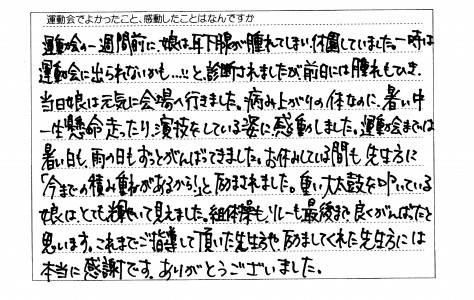 運動会でよかったこと、感動したことはなんですか
運動会の一週間前に、娘は耳下腺が腫れてしまい、休園していました。一時は
運動会に出られないかも…!!と、診断されましたが前日には腫れもひき、
当日娘は元気に会場へ行きました。病み上がりの体なのに、暑い中
一生懸命走ったり、演技をしている姿に感動しました。運動会までは
暑い日も、雨の日もずっとがんばってきました。お休みしている間も先生方に
「今までの積み重ねがあるから!」と励まされました。重い大太鼓を叩いている
娘はとても輝いて見えました。組体操もリレーも最後まで良くがんばったと
思います。これまでご指導して頂いた先生方や、励ましてくれた先生方には
本当に感謝です。ありがとうございました。